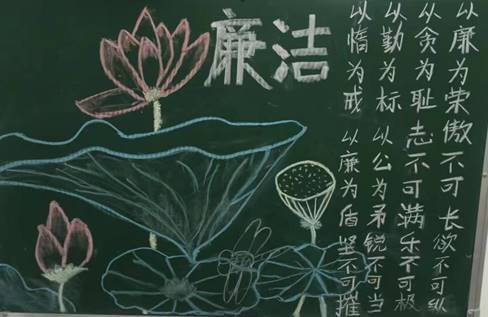 廉洁
以廉为荣傲不可长欲不可纵
以贪为耻志不可满乐不可极
以勤为标以公为矛锐不可当
以惰为戒以廉为盾坚不可摧